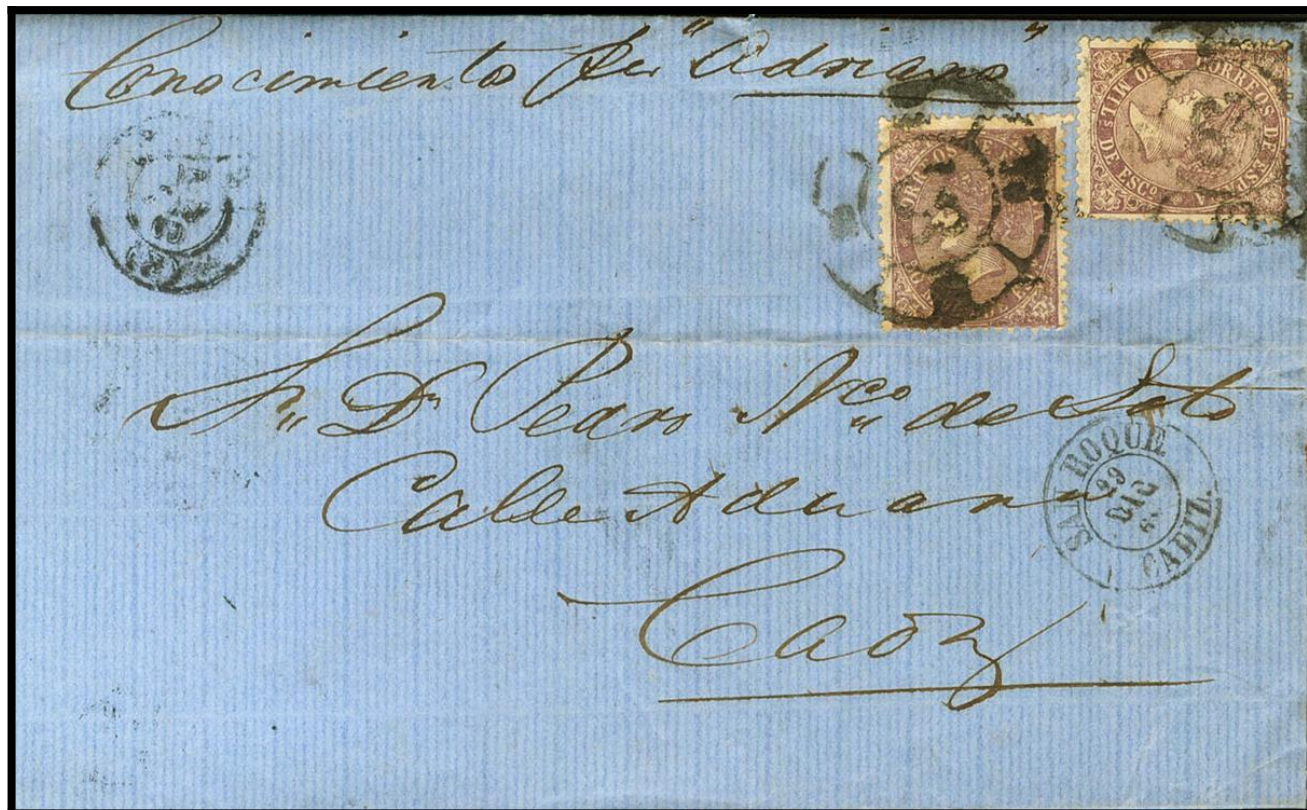 Conocimiento per "Adriano"
CORREOS DE ESPAÑA
MIL.s DE ESC.o
CORREOS
Sr. Dn Pedro Nco de Soto
Calle Aduana
Cadiz
SAN ROQUE.
29
DIC
CADIZ.